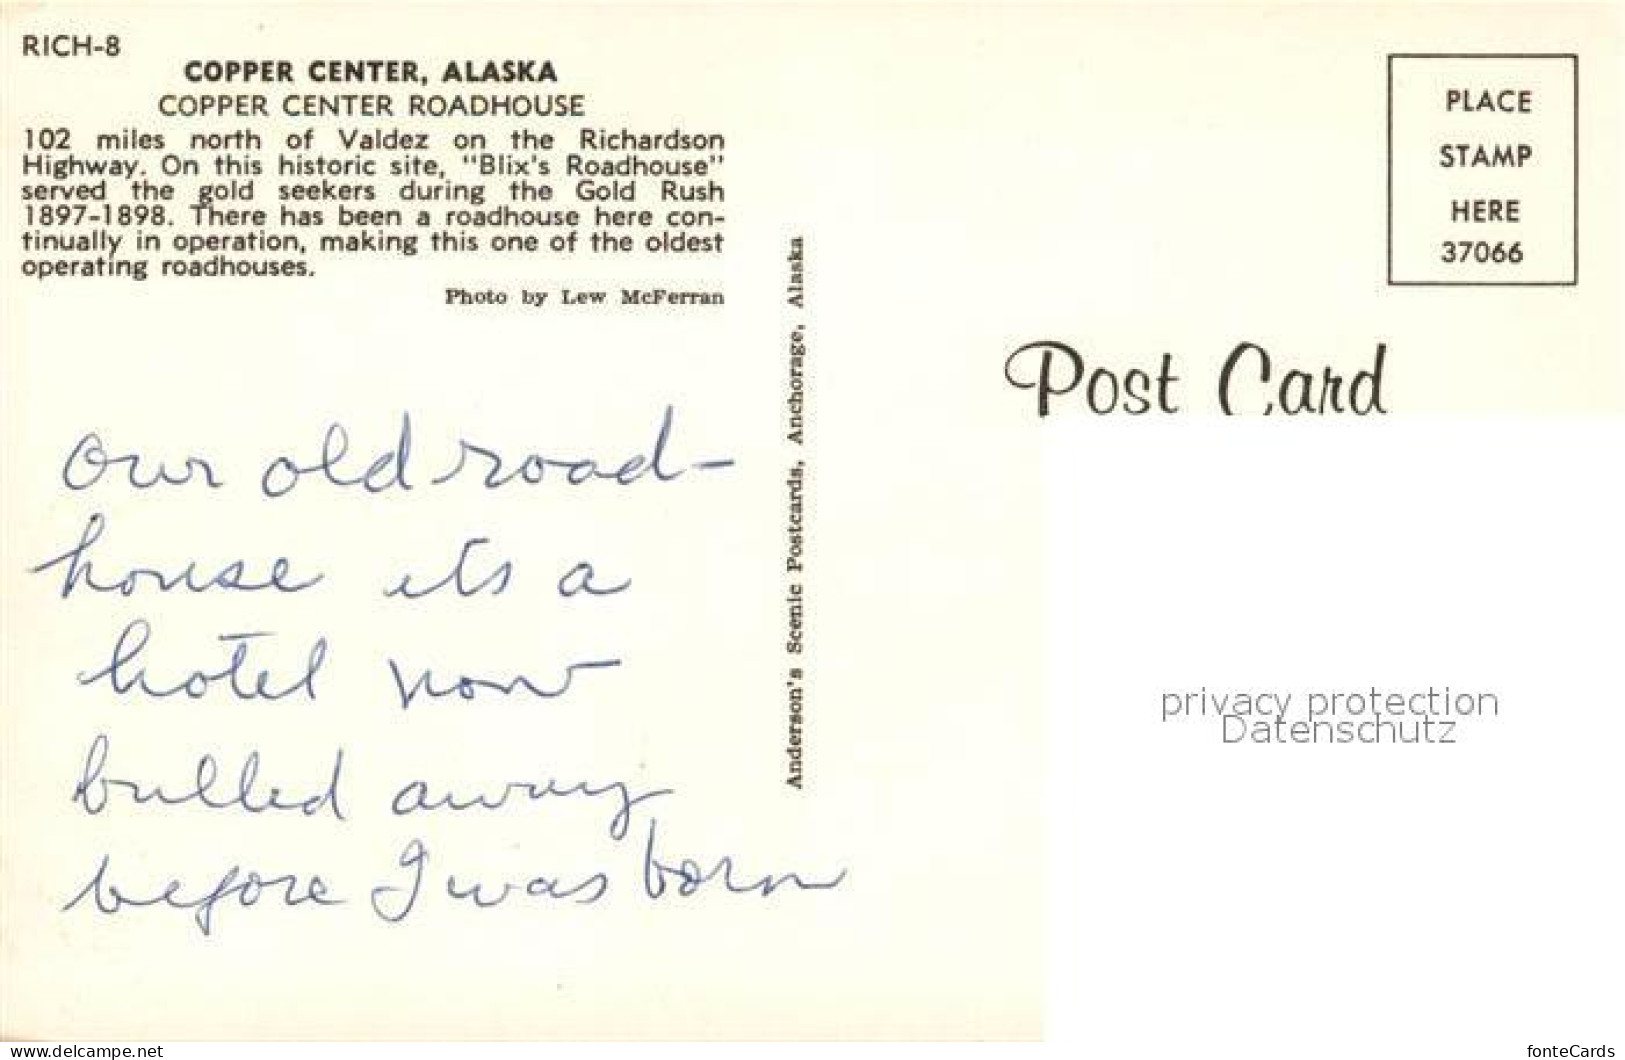 RICH-8
COPPER CENTER, ALASKA
COPPER CENTER ROADHOUSE
102 miles north of Valdez on the Richardson
Highway. On this historic site, "Blix's Roadhouse"
served the gold seekers during the Gold Rush
1897-1898. There has been a roadhouse here con-
tinually in operation, making this one of the oldest
operating roadhouses.
Photo by Lew McFerran
Our old road-
house its a
hotel now
bulled away
before I was born
Anderson's Scenic Postcards, Anchorage, Alaska
PLACE
STAMP
HERE
37066
Post Card
privacy protection
Datenschutz
www.delcampe.net
fonteCards